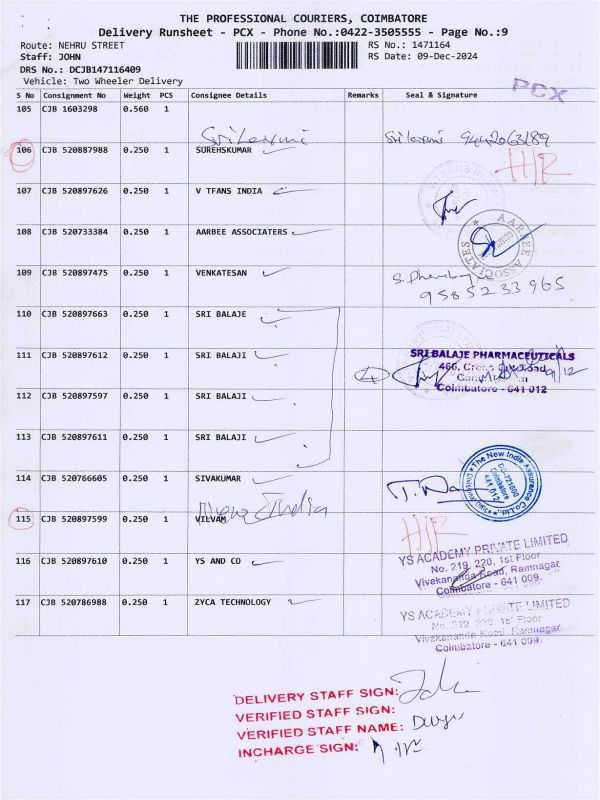 THE PROFESSIONAL COURIERS, COIMBATORE
Delivery Runsheet - PCX - Phone No.:0422-3505555 - Page No.:9
Route: NEHRU STREET RS No.: 1471164
Staff: JOHN RS Date: 09-Dec-2024
DRS No.: DCJB147116409
Vehicle: Two Wheeler Delivery
PCX
S No Consignment No Weight PCS Consignee Details Remarks Seal & Signature
105 CJB 1603298 0.560 1
Srilaxmi Srilaxmi 9442063189
106 CJB 520887988 0.250 1 SUREHSKUMAR H/R
107 CJB 520897626 0.250 1 V TFANS INDIA
108 CJB 520733384 0.250 1 AARBEE ASSOCIATERS
AARBEE ASSOCIATES
109 CJB 520897475 0.250 1 VENKATESAN
9585233965
110 CJB 520897663 0.250 1 SRI BALAJE
111 CJB 520897612 0.250 1 SRI BALAJI
SRI BALAJE PHARMACEUTICALS
466, Road
Coimbatore - 641 012
4
9/12
112 CJB 520897597 0.250 1 SRI BALAJI
113 CJB 520897611 0.250 1 SRI BALAJI
114 CJB 520766605 0.250 1 SIVAKUMAR
The New India Assurance Co. Ltd.
Divisional Office
DO-721600
Coimbatore
641 012
India
115 CJB 520897599 0.250 1 VILVAM H/R
116 CJB 520897610 0.250 1 YS AND CO
YS ACADEMY PRIVATE LIMITED
No. 219, 220, 1st Floor
Vivekananda Road, Ramnagar
Coimbatore - 641 009.
117 CJB 520786988 0.250 1 ZYCA TECHNOLOGY
YS ACADEMY PRIVATE LIMITED
No. 219, 220, 1st Floor
Vivekananda Road, Ramnagar
Coimbatore - 641 009.
DELIVERY STAFF SIGN:
VERIFIED STAFF SIGN:
VERIFIED STAFF NAME:
INCHARGE SIGN: